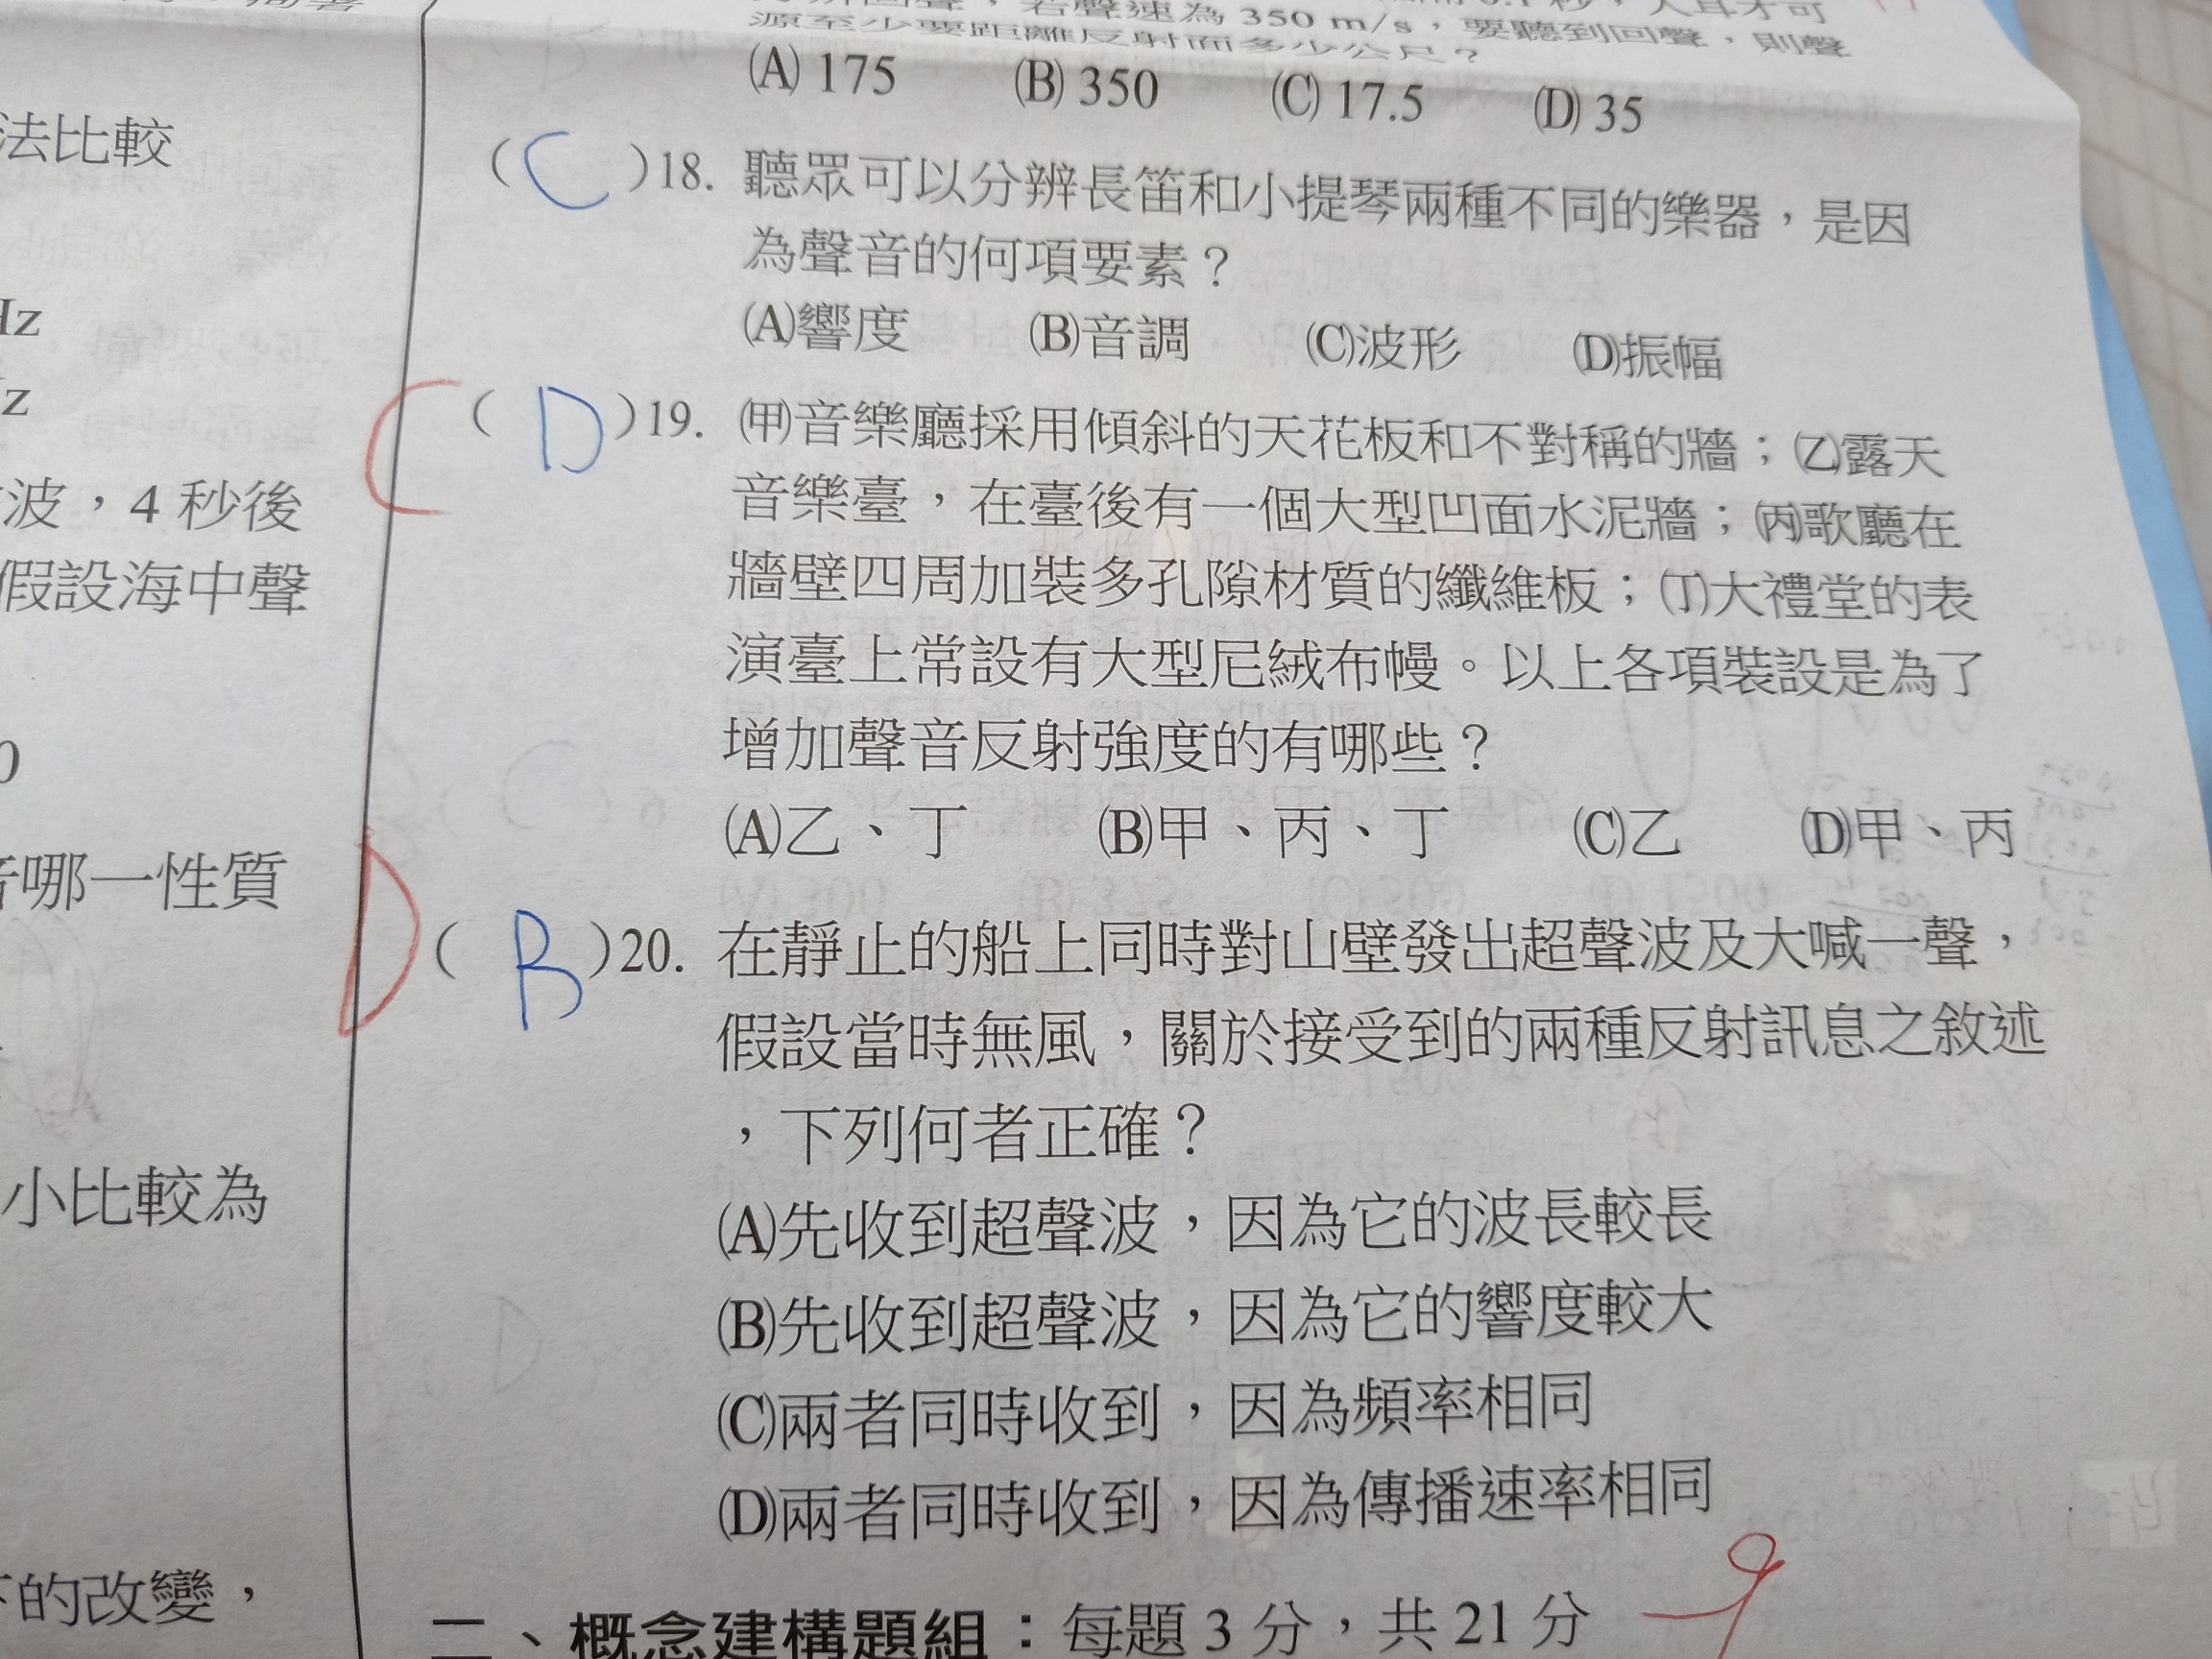 法比較
Hz
z
波，4 秒後
假設海中聲
0
哪一性質
小比較為
的改變，
若聲速為 350 m/s，要聽到回聲，則聲
源至少要距離反射面多少公尺？
(A) 175 (B) 350 (C) 17.5 (D) 35
( C )18. 聽眾可以分辨長笛和小提琴兩種不同的樂器，是因
為聲音的何項要素？
(A)響度 (B)音調 (C)波形 (D)振幅
C ( D )19. ㈲音樂廳採用傾斜的天花板和不對稱的牆；(乙)露天
音樂臺，在臺後有一個大型凹面水泥牆；(丙)歌廳在
牆壁四周加裝多孔隙材質的纖維板；(丁)大禮堂的表
演臺上常設有大型尼絨布幔。以上各項裝設是為了
增加聲音反射強度的有哪些？
(A)乙、丁 (B)甲、丙、丁 (C)乙 (D)甲、丙
D ( B )20. 在靜止的船上同時對山壁發出超聲波及大喊一聲，
假設當時無風，關於接受到的兩種反射訊息之敘述
，下列何者正確？
(A)先收到超聲波，因為它的波長較長
(B)先收到超聲波，因為它的響度較大
(C)兩者同時收到，因為頻率相同
(D)兩者同時收到，因為傳播速率相同
二、概念建構題組：每題 3 分，共 21 分
-9